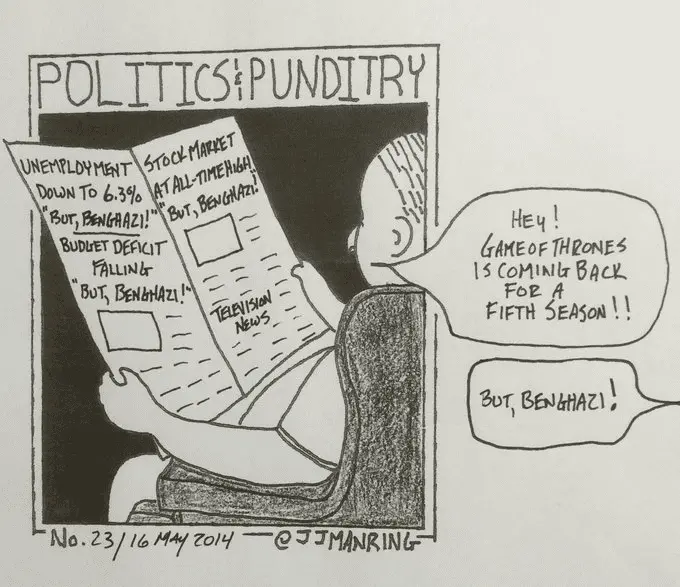 POLITICS & PUNDITRY
UNEMPLOYMENT
DOWN TO 6.3%
"BUT, BENGHAZI!"
BUDGET DEFICIT
FALLING
"BUT, BENGHAZI!"
STOCK MARKET
AT ALL-TIME HIGH!
"BUT, BENGHAZI!"
TELEVISION
NEWS
HEY!
GAME OF THRONES
IS COMING BACK
FOR A
FIFTH SEASON!!
BUT, BENGHAZI!
No. 23/16 MAY 2014 — @JJMANRING